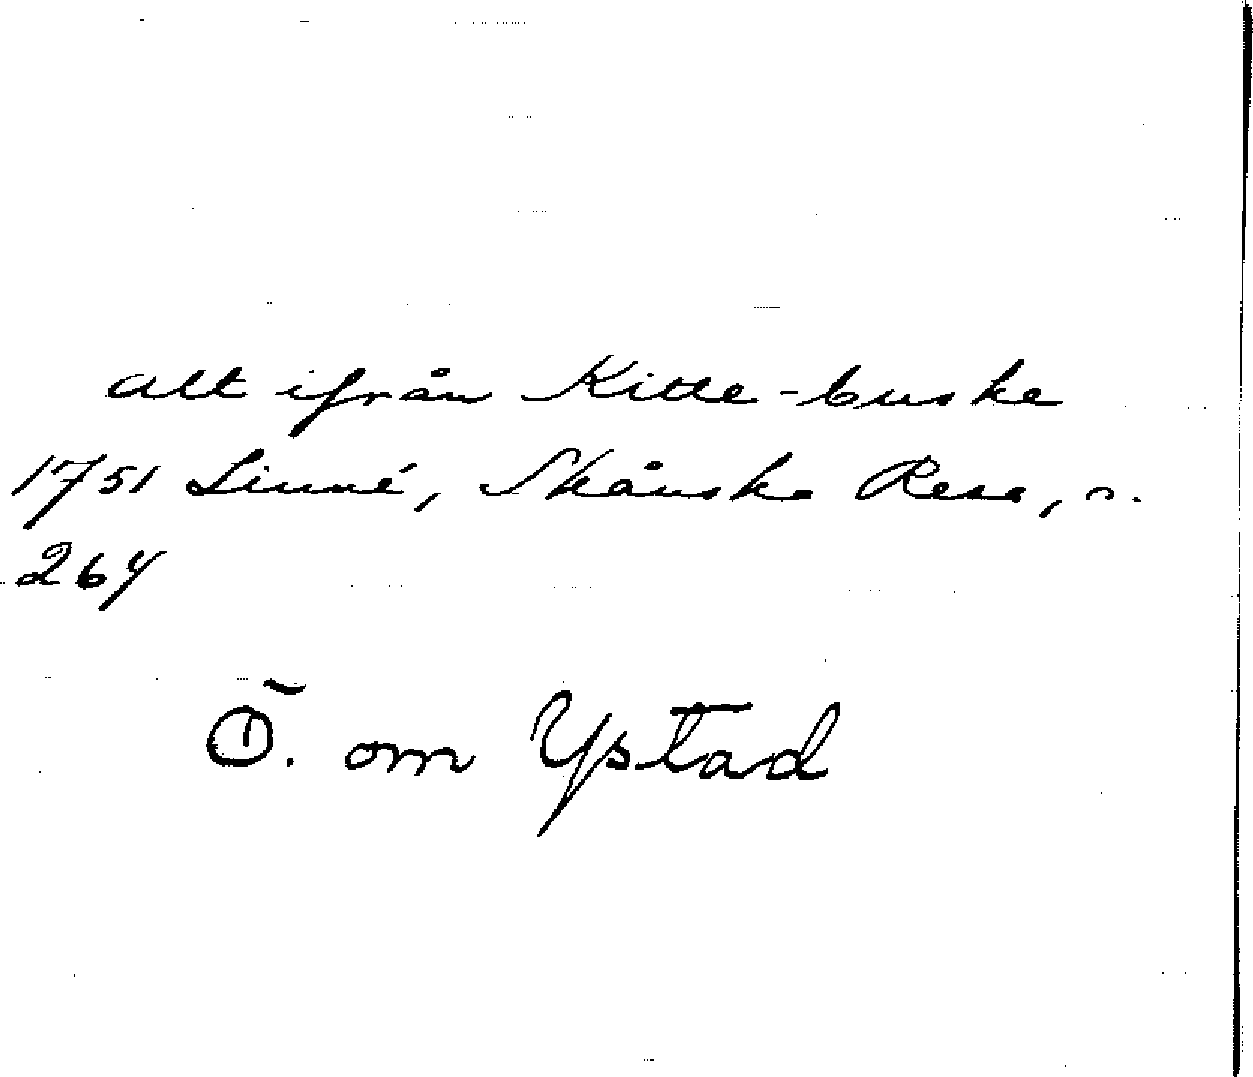 alt ifrån Kitte-buske
1751 Linné, Skånska Resa, s.
264
Ö. om Ystad